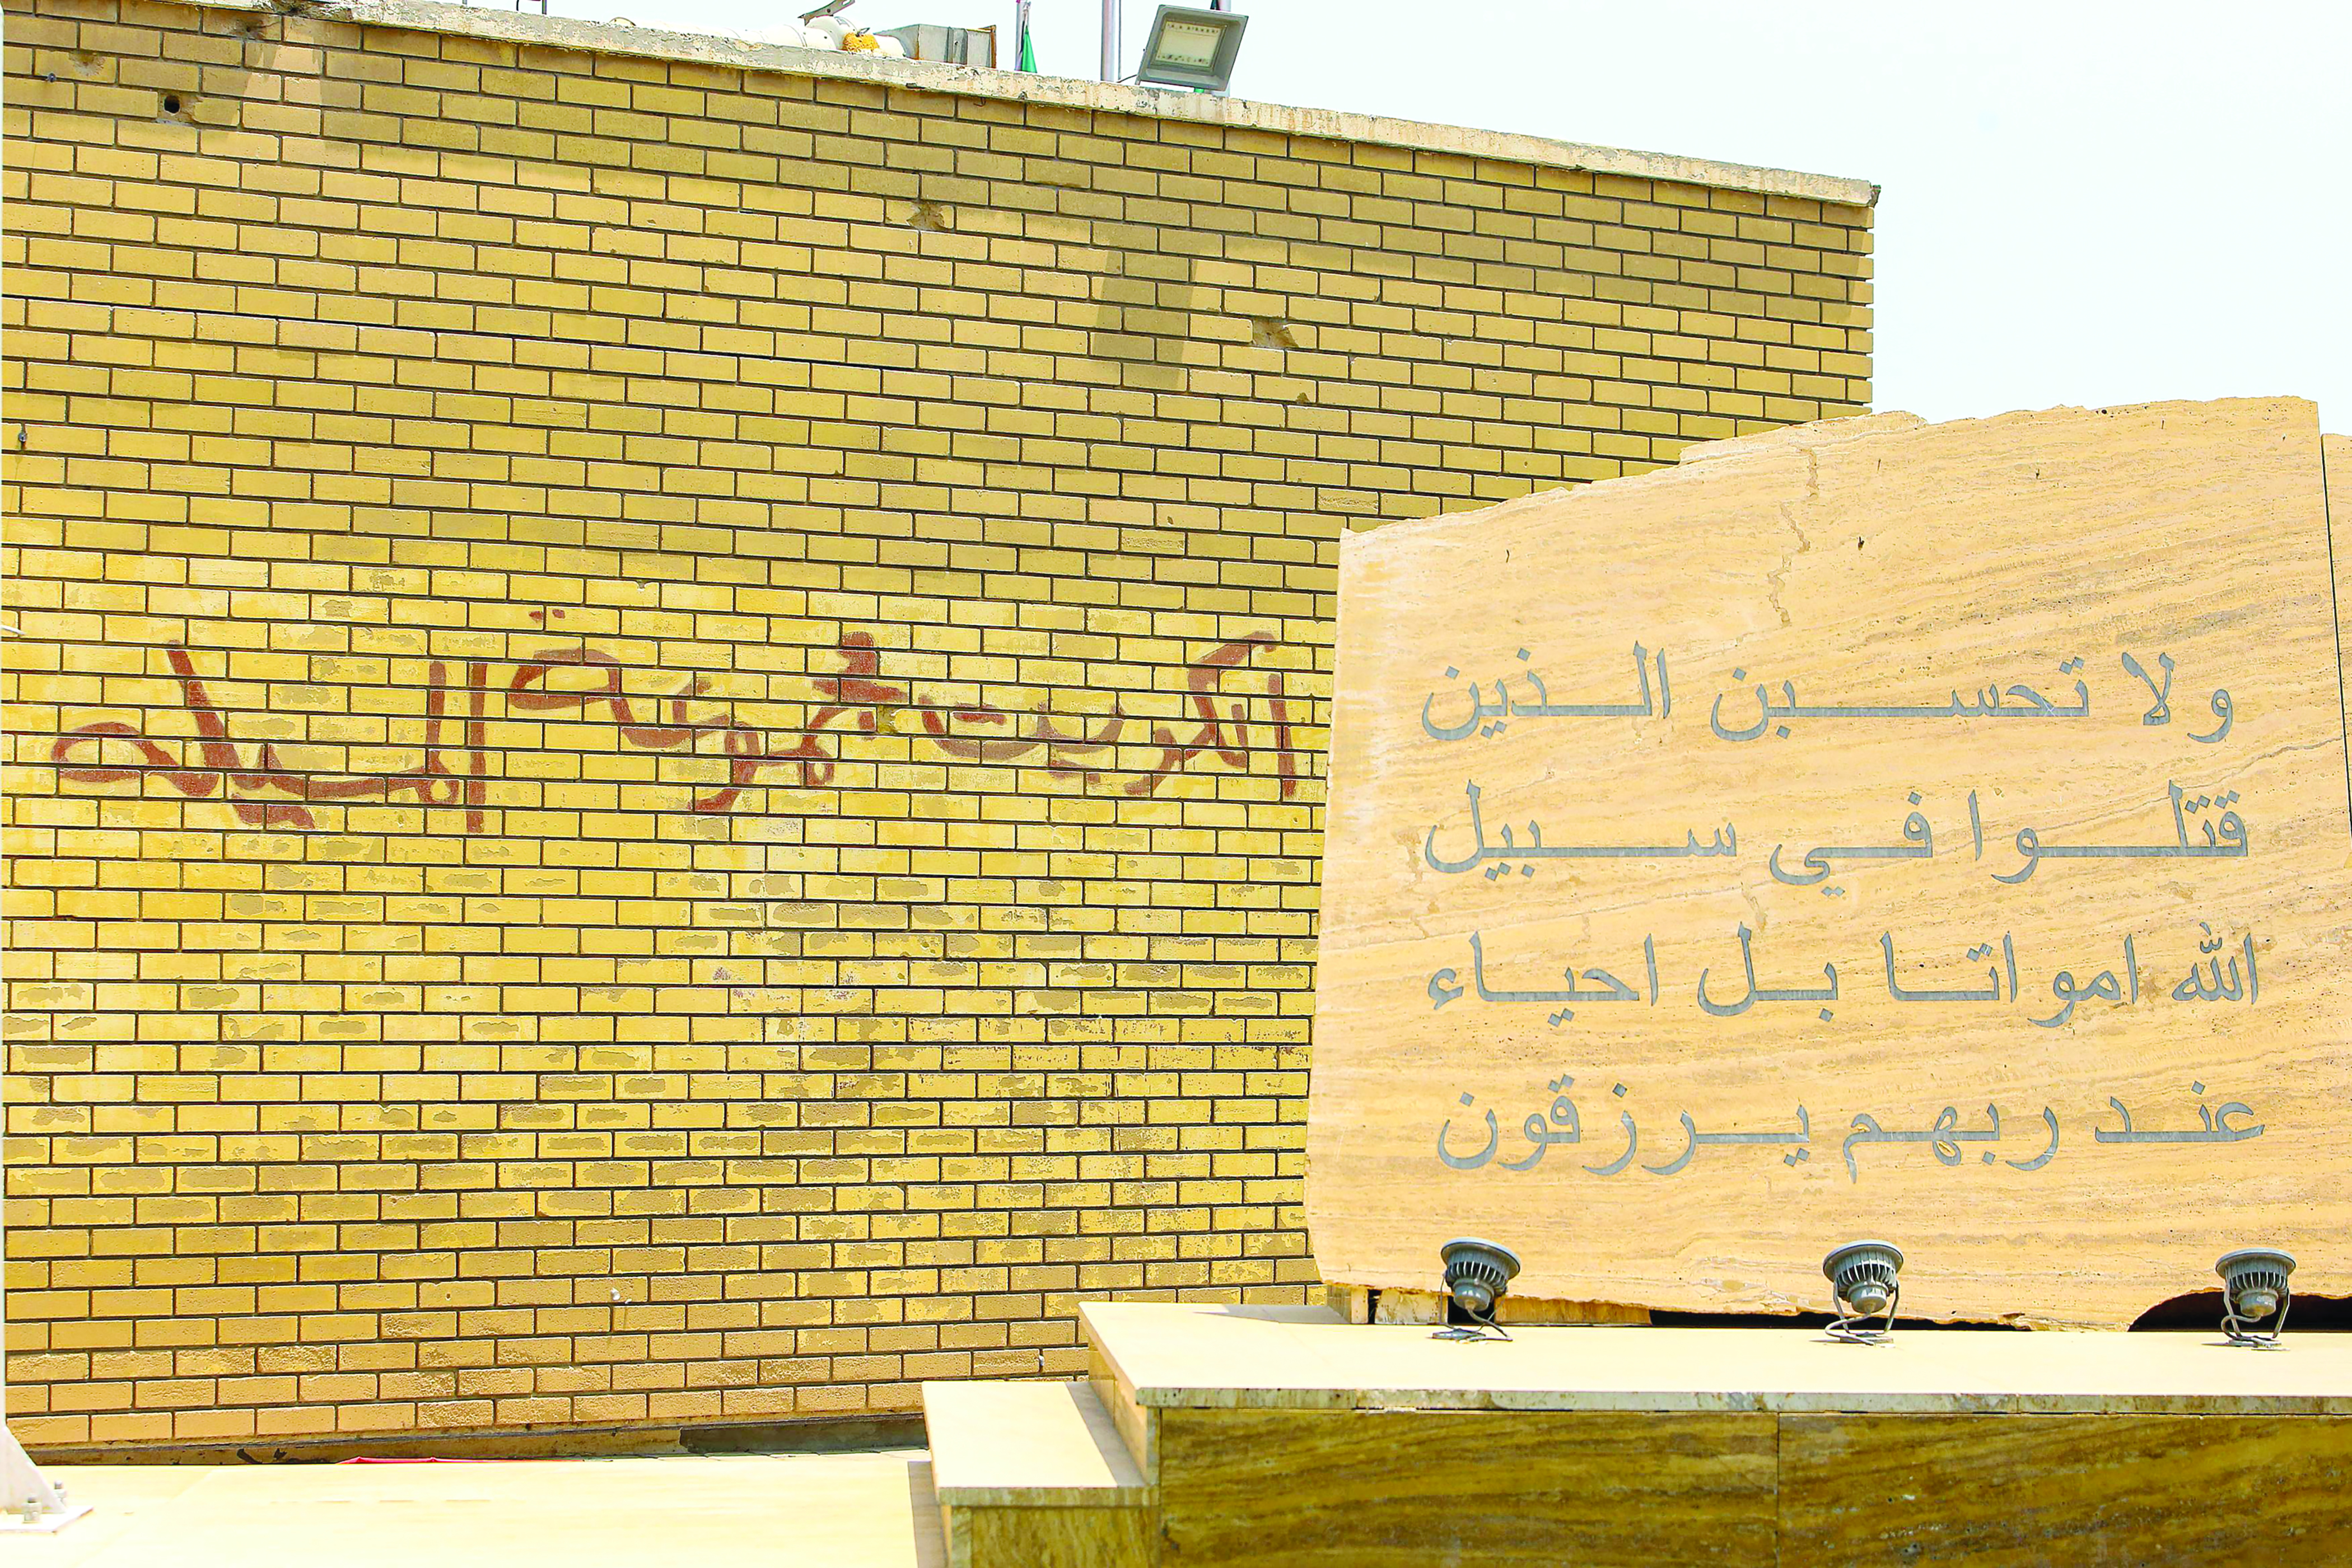 الكويت شوكة البلاد
ولا تحسبن الذين
قتلوا في سبيل
الله امواتا بل احياء
عند ربهم يرزقون